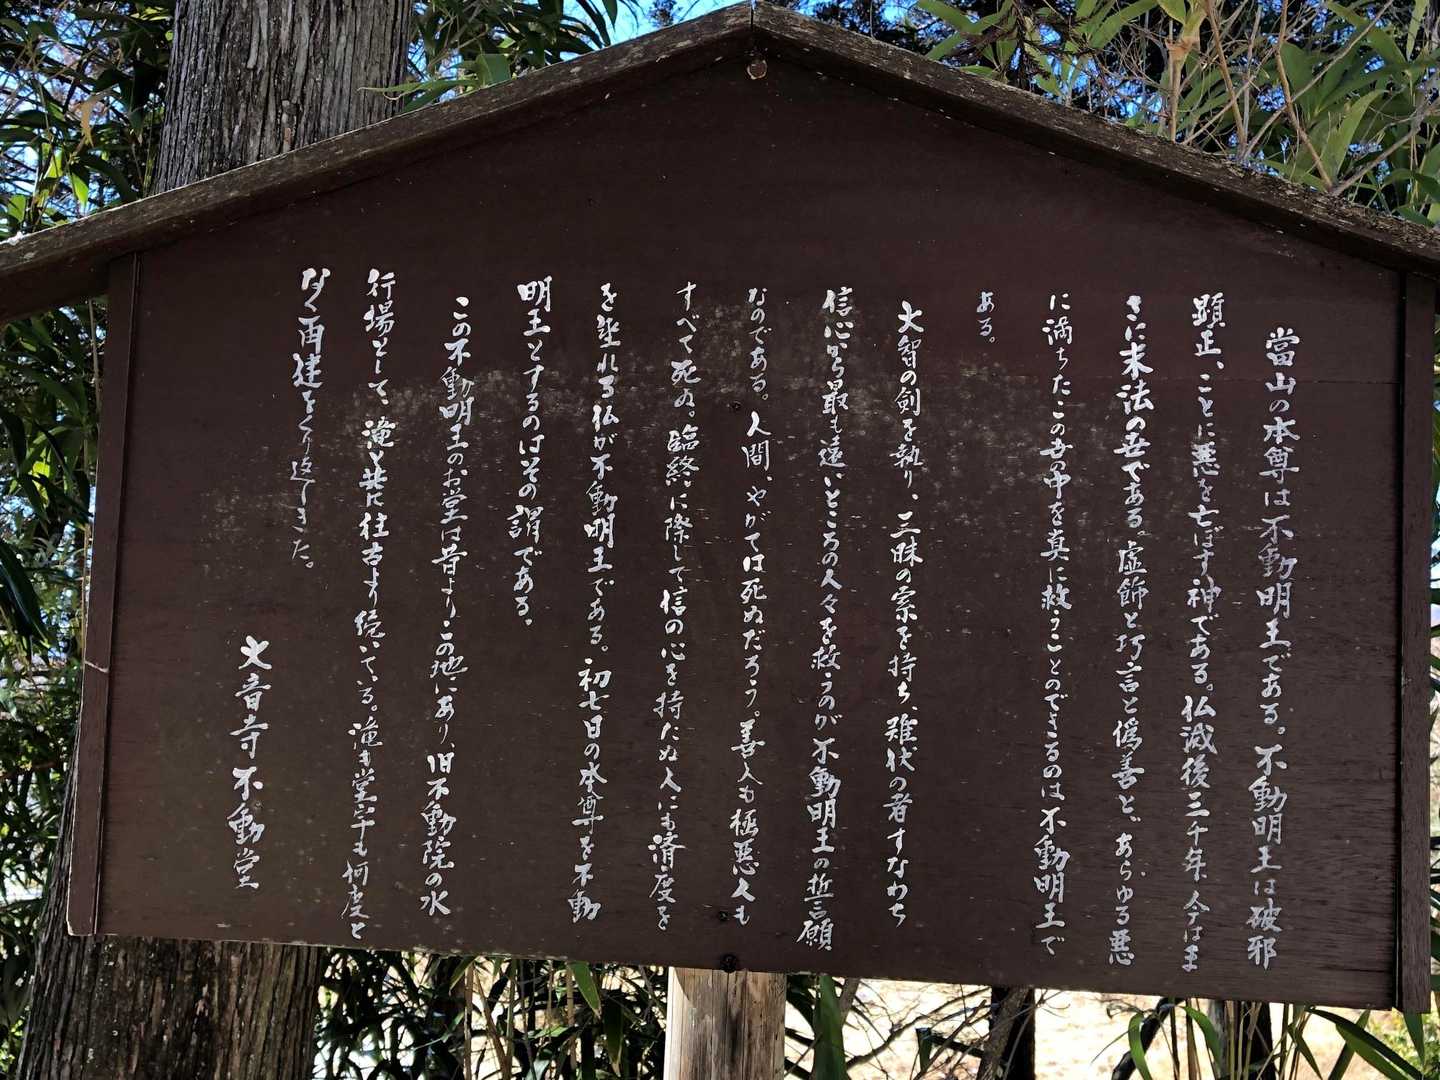 當山の本尊は不動明王である。不動明王は破邪
顕正、ことに悪を亡ぼす神である。仏滅後三千年、今はま
さに末法の世である。虚飾と巧言と偽善と、あらゆる悪
に満ちたこの世の中を真に救うことのできるのは不動明王で
ある。
大智の剣を執り、三昧の索を持ち、難伏の者すなわち
信心から最も遠いところの人々を救うのが不動明王の誓願
なのである。人間、やがては死ぬだろう。善人も極悪人も
すべて死ぬ。臨終に際して信の心を持たぬ人にも済度を
を垂れる仏が不動明王である。初七日の本尊を不動
明王とするのはその謂である。
この不動明王のお堂は昔よりこの地にあり、旧不動院の水
行場として、滝と共に往古より続いている。滝も堂宇も何度と
なく再建をくり返しきた。
大音寺不動堂